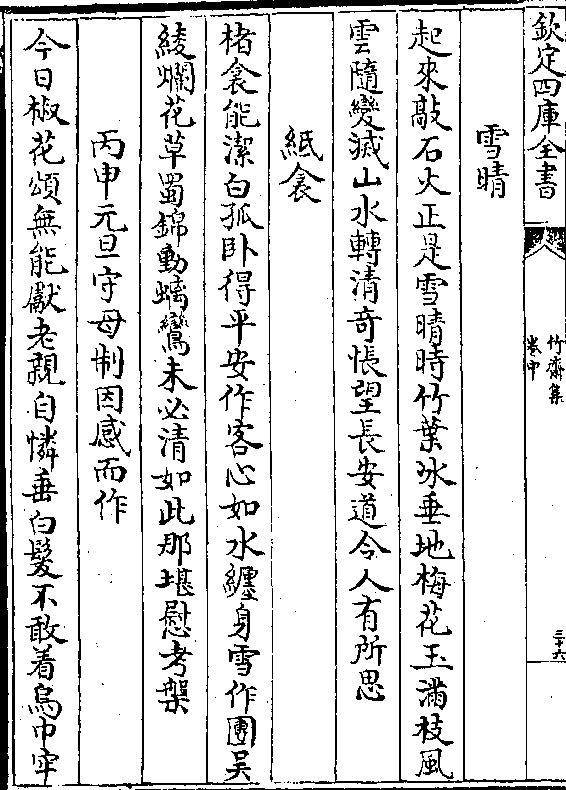 欽定四庫全書
竹齋集
卷中
三十六
雪晴
起來敲石火正是雪晴時竹葉冰垂地梅花玉滿枝風
雲隨變滅山水轉清奇悵望長安道令人有所思
紙衾
楮衾能潔白孤卧得平安作客心如水纏身雪作團吳
綾爛花草蜀錦動螭鸞未必清如此那堪慰考槃
丙申元旦守母制因感而作
今日椒花頌無能獻老親自憐垂白髮不敢着烏巾牢